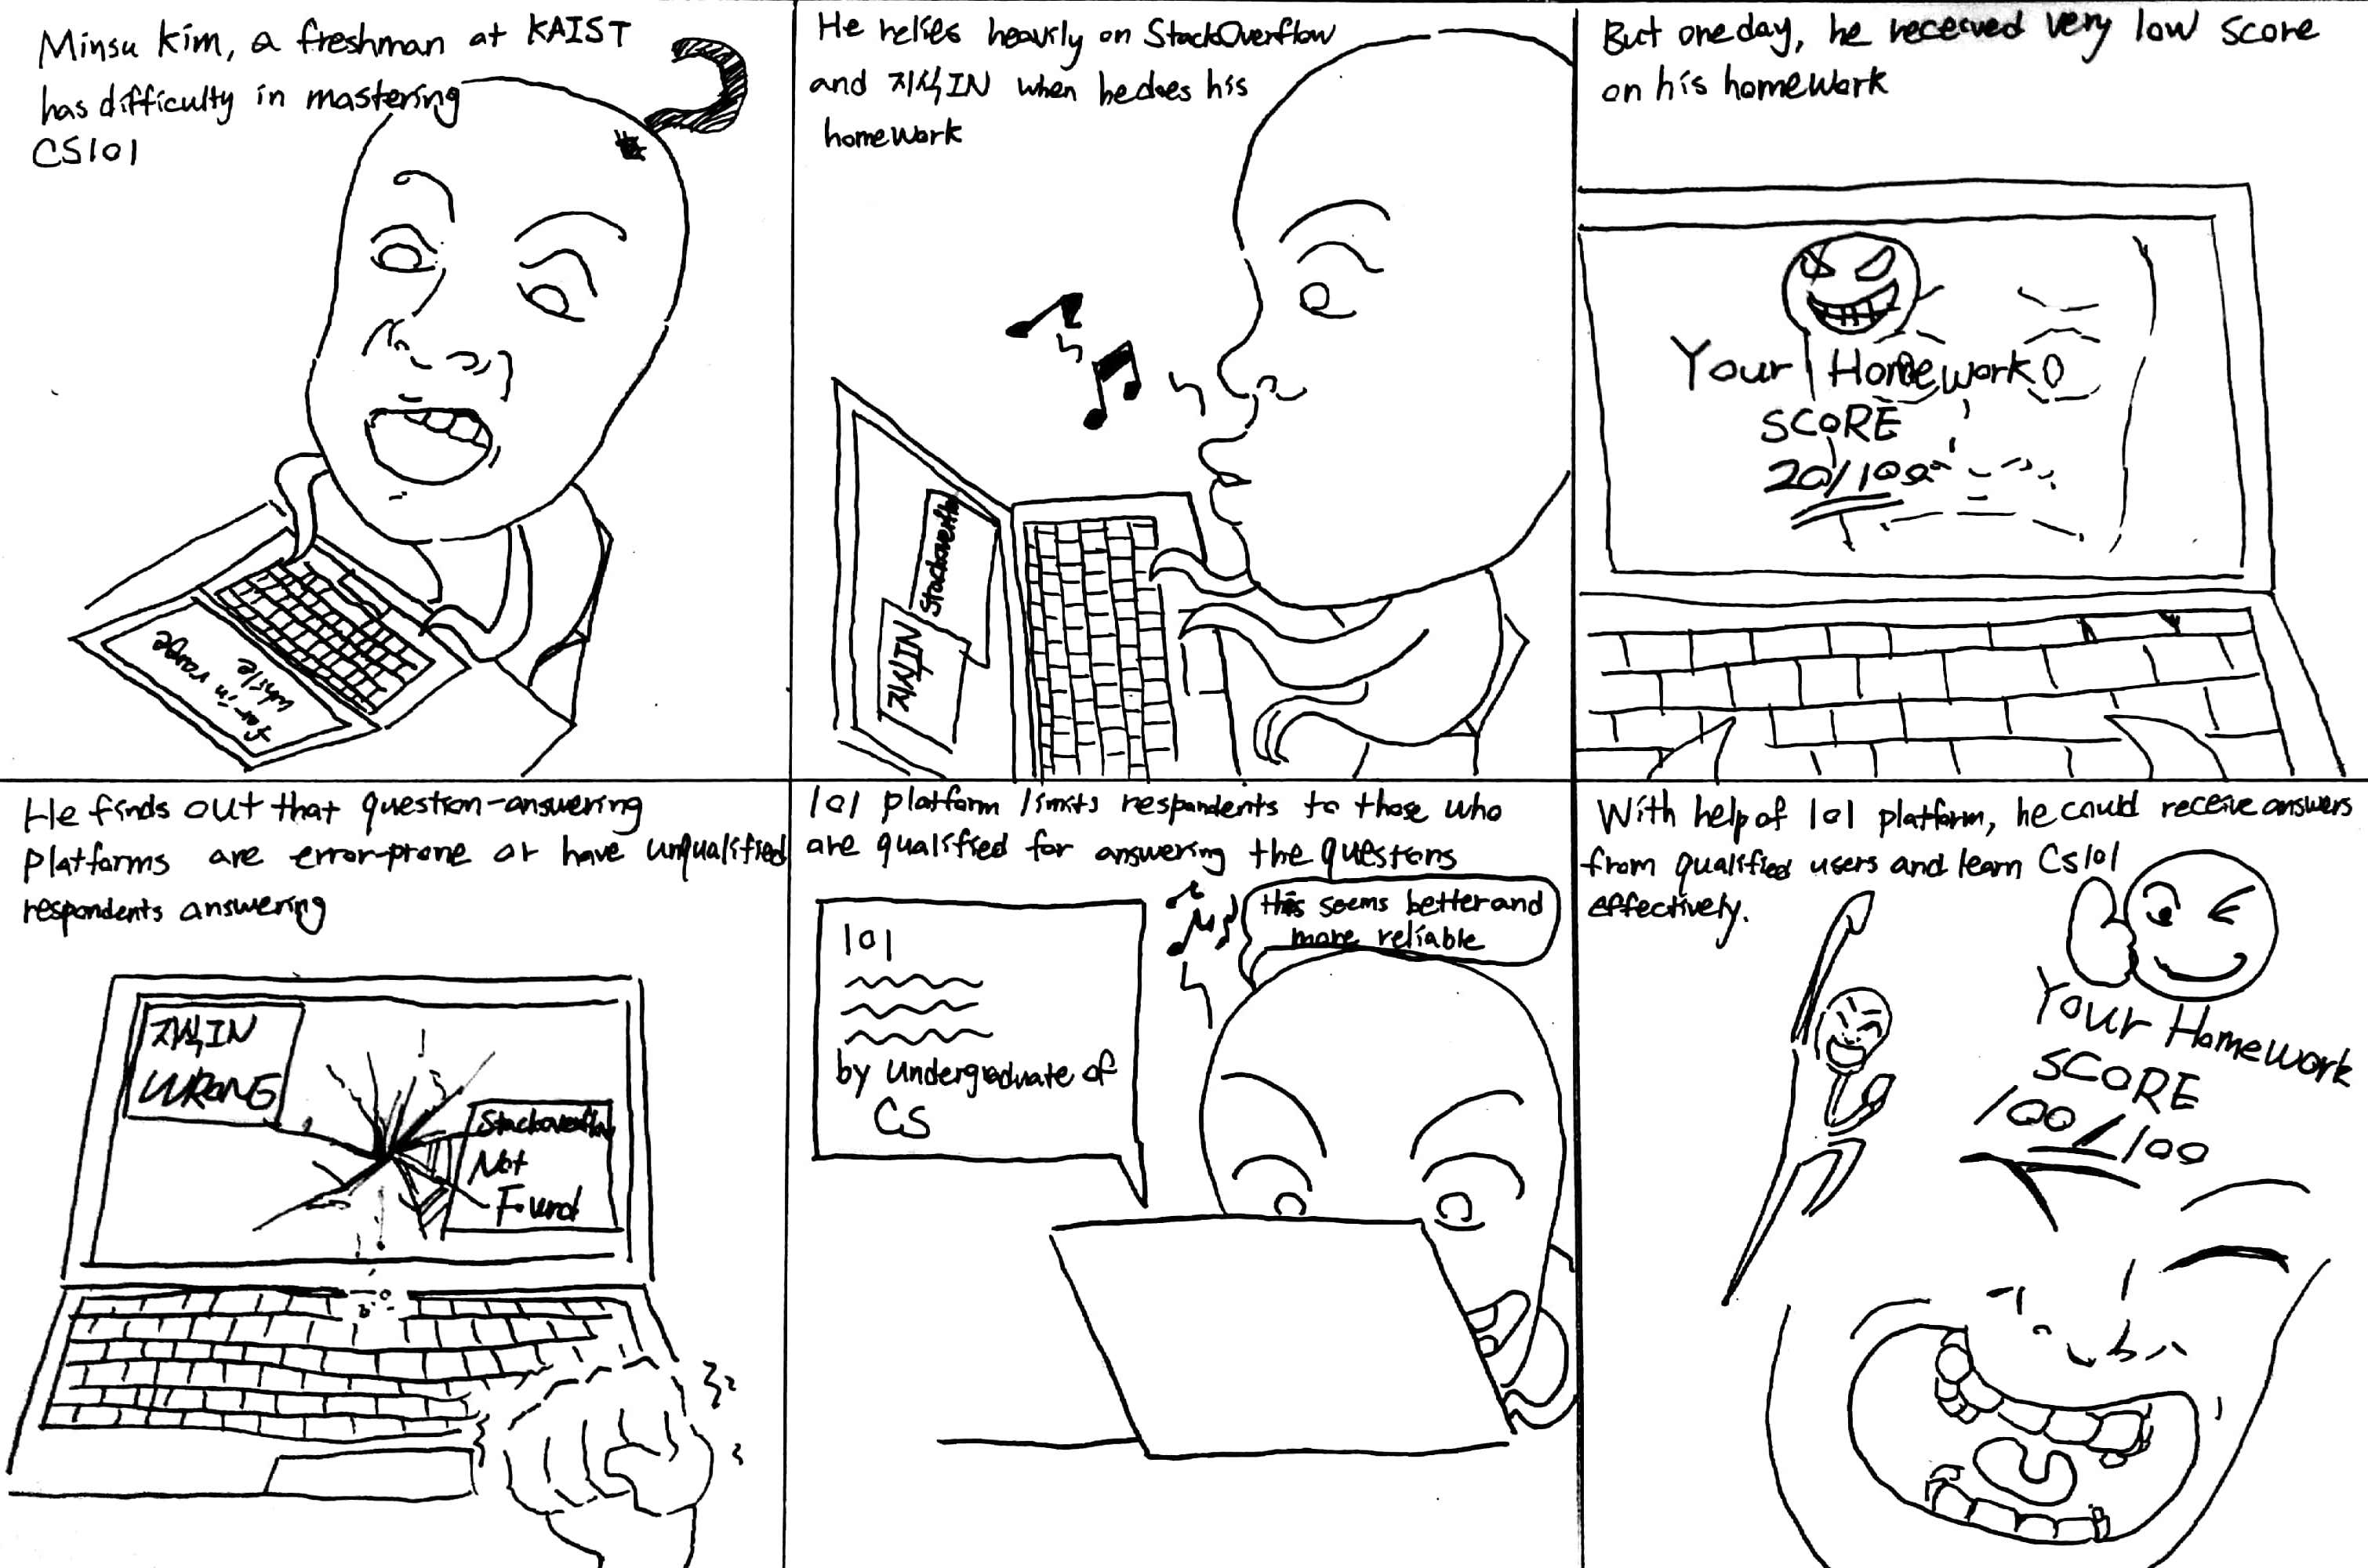 Minsu Kim, a freshman at KAIST
has difficulty in mastering
CS101
for in range
while
He relies heavily on StackOverflow
and 지식IN when he does his
homework
Stackoverflow
지식IN
But one day, he received very low score
on his homework
Your Homework
SCORE
20/100
He finds out that question-answering
platforms are error-prone or have unqualified
respondents answering
지식IN
WRONG
Stackoverflow
Not
Found
101 platform limits respondents to those who
are qualified for answering the questions
this seems better and
more reliable
101
by undergraduate of
CS
With help of 101 platform, he could receive answers
from qualified users and learn CS101
effectively.
Your Homework
SCORE
100/100